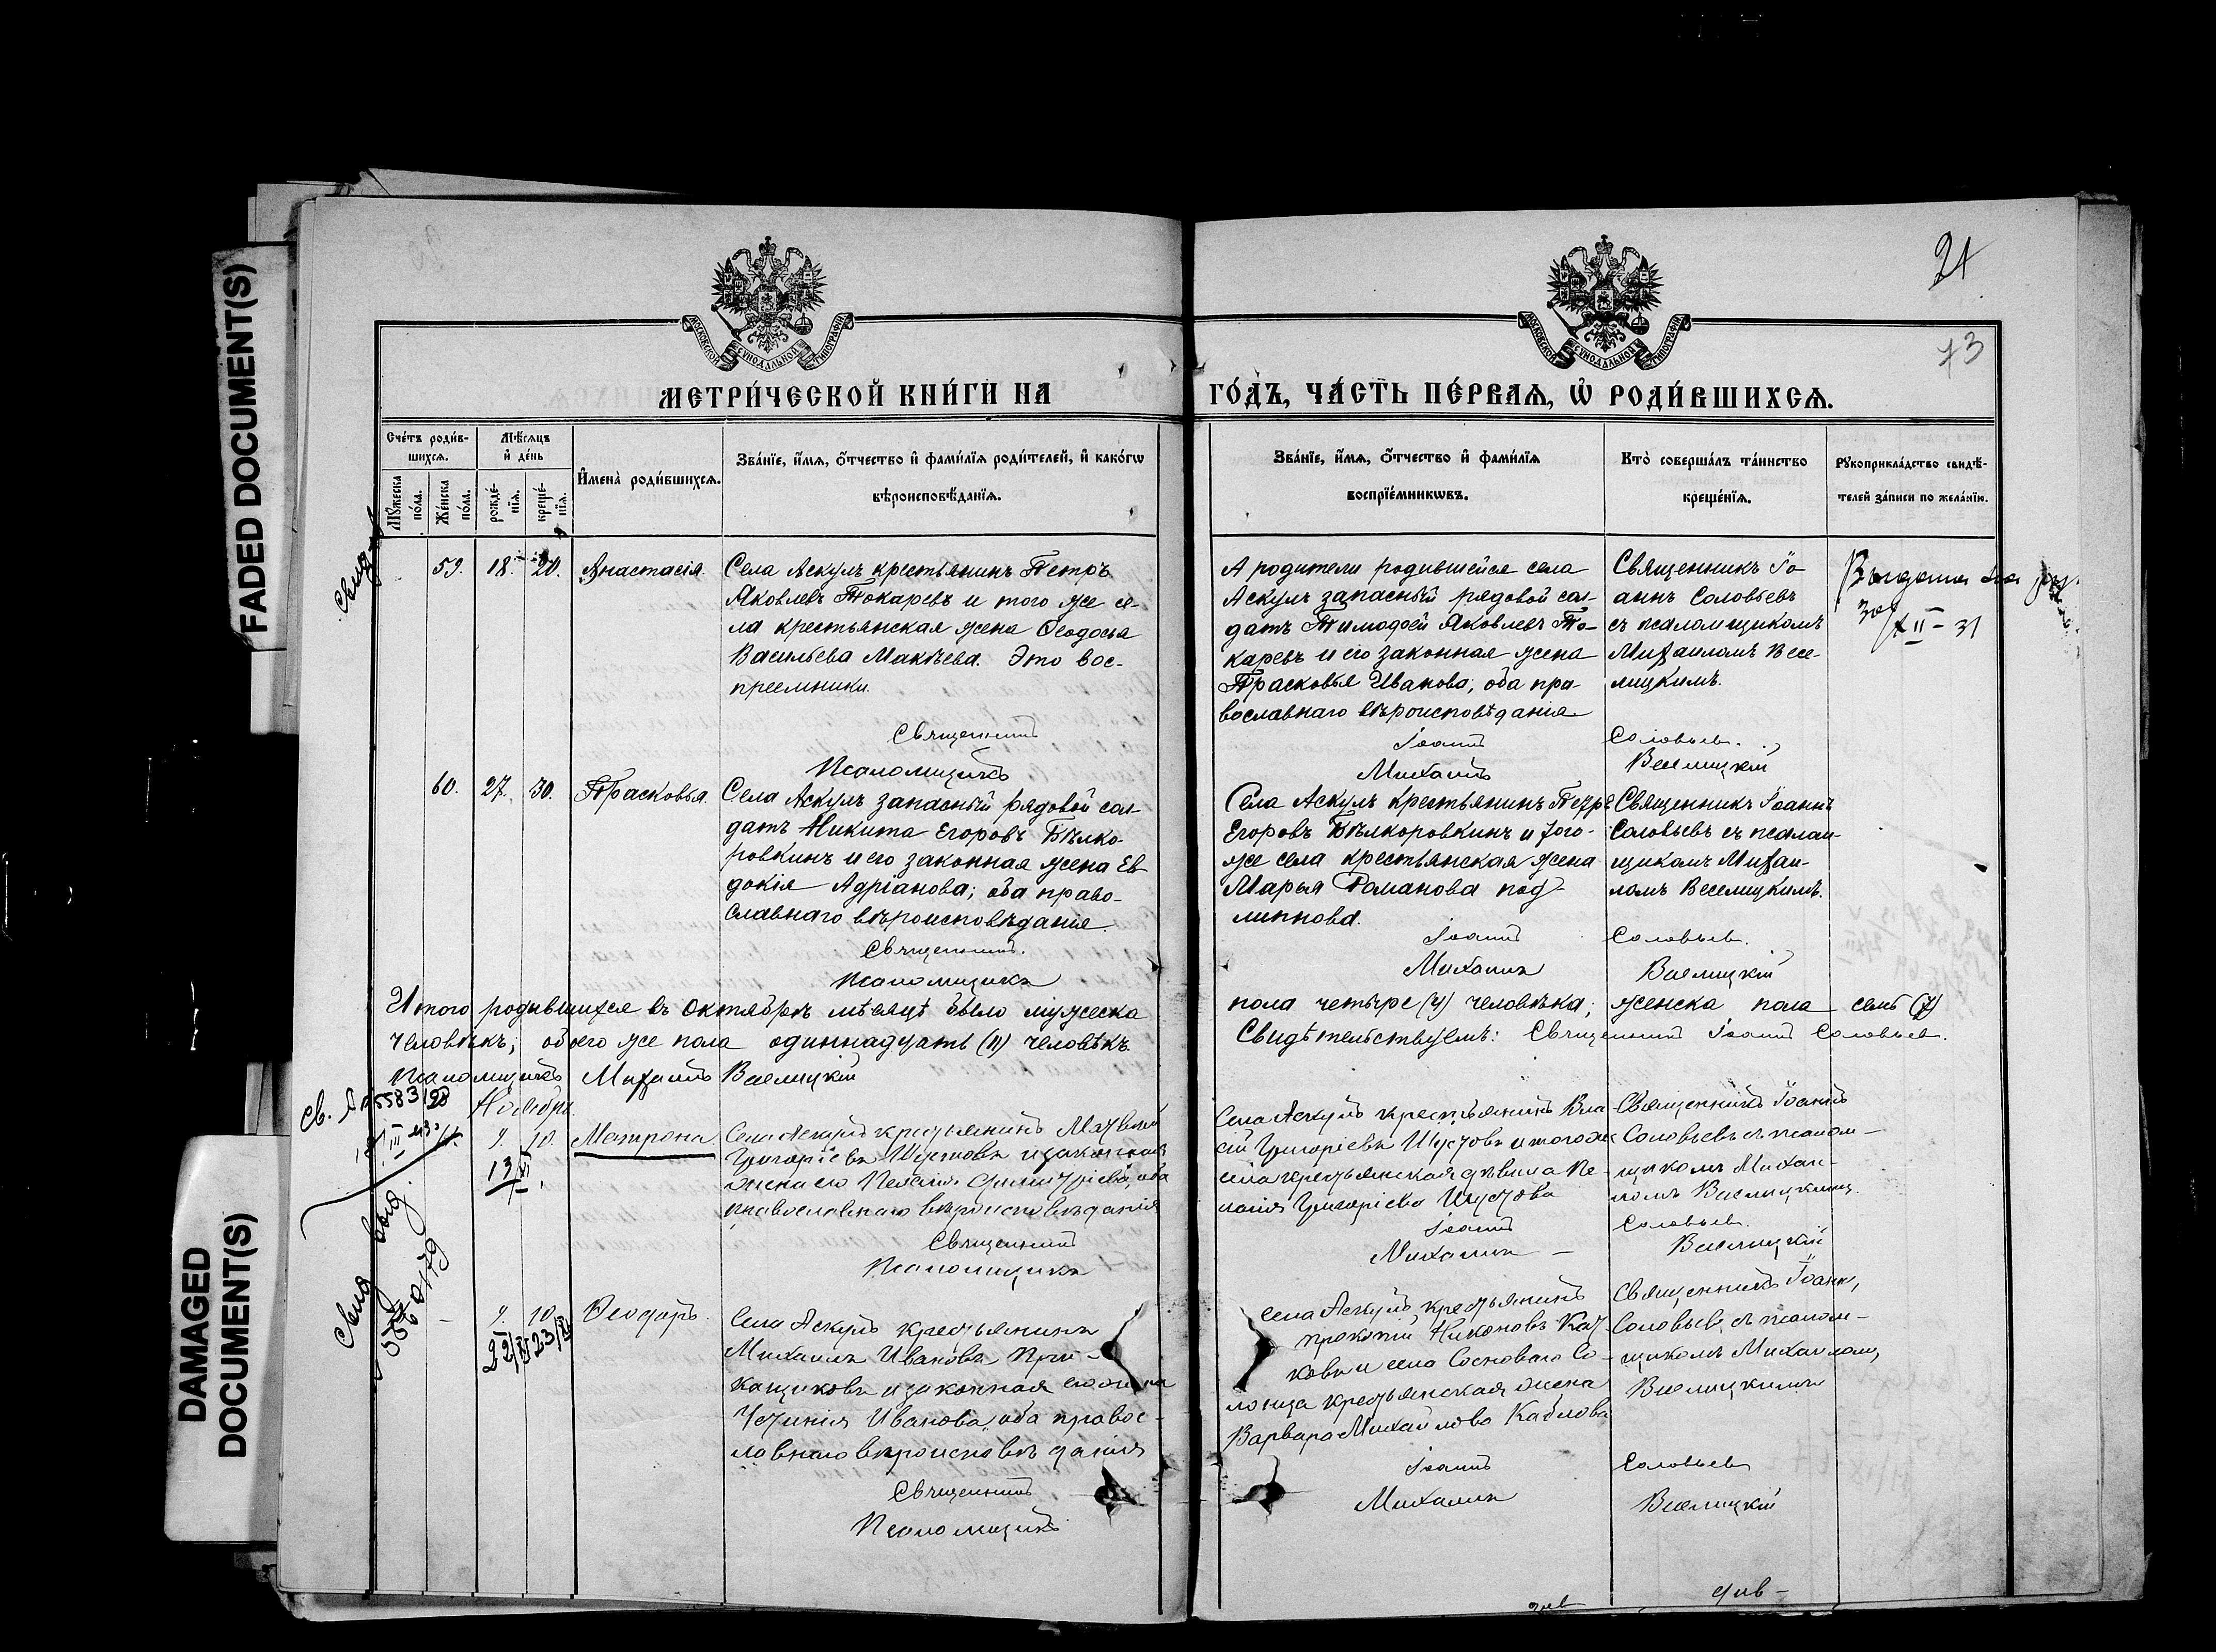 FADED DOCUMENT(S)
DAMAGED
DOCUMENT(S)
21
73
МОСКОВСКОЙ СѴНОДАЛЬНОЙ ТИПОГРАФІИ
МОСКОВСКОЙ СѴНОДАЛЬНОЙ ТИПОГРАФІИ
МЕТРИ́ЧЕСКОЙ КНИ́ГИ НА ГО́ДЪ, ЧА́СТЬ ПЕ́РВАѦ, Ѡ҆ РОДИ́ВШИХСѦ.
Сче́тъ роди́в-
шихсѧ.
Мѣ́сѧцъ
и҆ де́нь
Мꙋ́жеска по́ла.
Же́нска по́ла.
рожде́-
нїѧ.
креще́-
нїѧ.
И҆мена̀ роди́вшихсѧ.
Зва́нїе, и҆́мѧ, ѻ҆́тчество и҆ фами́лїѧ роди́телей, и҆ како́гѡ
вѣроисповѣ́данїѧ.
Зва́нїе, и҆́мѧ, ѻ҆́тчество и҆ фами́лїѧ
воспрїе́мникѡвъ.
Кто̀ соверша́лъ та́инство
креще́нїѧ.
Рꙋкоприкла́дство свидѣ́-
телей за́писи по жела́нїю.
59. 18. 20. Анастасія.
Села Аскулъ крестьянинъ Петръ
Яковлевъ Токаревъ и того же се-
ла крестьянская жена Ѳеодосья
Васильева Макѣева. Это вос-
преемники.
Священникъ
Псаломщикъ
А родители родившейся села
Аскулъ запасный рядовой сол-
датъ Тимофей Яковлевъ То-
каревъ и его законная жена
Прасковья Иванова; оба пра-
вославнаго вѣроисповѣданія
Іоаннъ
Михаилъ
Священникъ Іо-
аннъ Соловьевъ
съ псаломщикомъ
Михаиломъ Весе-
лицкимъ.
Соловьев.
Веселицкій
XII - 31
60. 27. 30. Прасковья.
Села Аскулъ запасный рядовой сол-
датъ Никита Егоровъ Бѣлко-
ровкинъ и его законная жена Ев-
докія Адріанова; оба право-
славнаго вѣроисповѣданія.
Священникъ.
Псаломщикъ
Села Аскулъ крестьянинъ Петръ
Егоровъ Бѣлкоровкинъ и того-
же села крестьянская жена
Марья Романова Под-
липнова.
Іоаннъ
Михаилъ
Священникъ Іоаннъ
Соловьевъ съ псалом-
щикомъ Михаи-
ломъ Веселицкимъ.
Соловьев.
Веселицкій
Итого родившихся въ Октябрѣ мѣсяцѣ было мужеска пола четыре (4) человѣка; женска пола семь (7)
человѣкъ; обоего же пола одиннадцать (11) человѣкъ. Свидѣтельствуемъ: Священникъ Іоаннъ Соловьев.
Псаломщикъ Михаилъ Веселицкій
Ноябрь.
9. 10. Матрона
13
Села Аскулъ крестьянинъ Матвей
Григорьевъ Шустовъ и законная
жена его Пелагія Димитріева, оба
православнаго вѣроисповѣданія
Священникъ
Псаломщикъ
Села Аскулъ крестьянинъ Вла-
сій Григорьевъ Шустовъ и того же
села крестьянская дѣвица Пе-
лагія Григоріева Шустова
Іоаннъ
Михаилъ
Священникъ Іоаннъ
Соловьевъ съ псалом-
щикомъ Михаи-
ломъ Веселицкимъ.
Соловьев.
Веселицкій
- 9. 10. Ѳеодоръ.
Села Аскулъ крестьянинъ
Михаилъ Ивановъ При-
кащиковъ и законная его жена
Устинія Иванова, оба правос-
лавнаго вѣроисповѣданія
Священникъ
Псаломщикъ
Села Аскулъ крестьянинъ
Прокопій Никоновъ Кат-
ковъ и села Сосноваго Со-
лонца крестьянская жена
Варвара Михайлова Каблова
Іоаннъ
Михаилъ
Священникъ Іоаннъ,
Соловьевъ, съ псалом-
щикомъ Михаиломъ
Веселицкимъ
Соловьев
Веселицкій